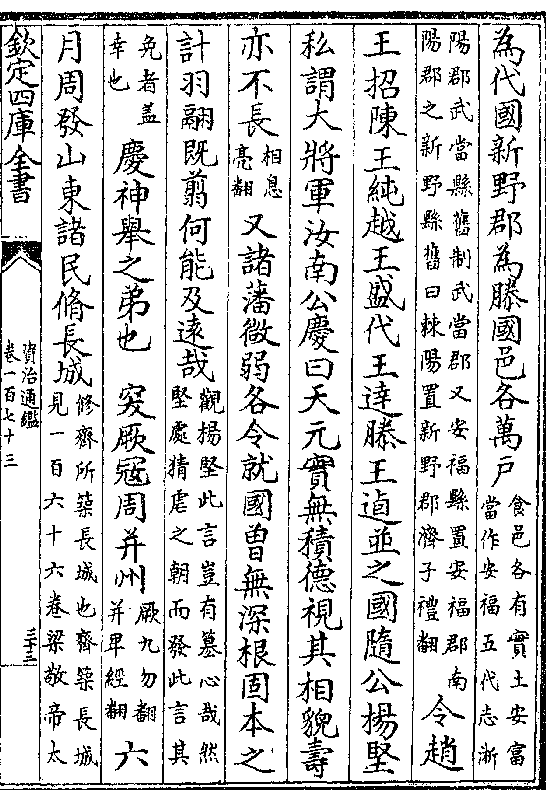 為代國新野郡為滕國邑各萬戶食邑各有實土安富當作安福五代志淅
陽郡武當縣舊制武當郡又安福縣置安福郡南陽郡之新野縣舊曰棘陽置新野郡濟子禮翻令趙
王招陳王純越王盛代王達滕王逌並之國隨公揚堅
私謂大將軍汝南公慶曰天元實無積德視其相貌壽
亦不長相息亮翻又諸藩微弱各令就國曾無深根固本之
計羽翮既翦何能及遠哉觀揚堅此言豈有篡心哉然堅處猜虐之朝而發此言其
免者蓋幸也慶神舉之弟也 突厥寇周并州厥九勿翻并卑經翻六
月周發山東諸民脩長城修齊所築長城也齊築長城見一百六十六卷梁敬帝太
欽定四庫全書
資治通鑑
卷一百七十三
三十三